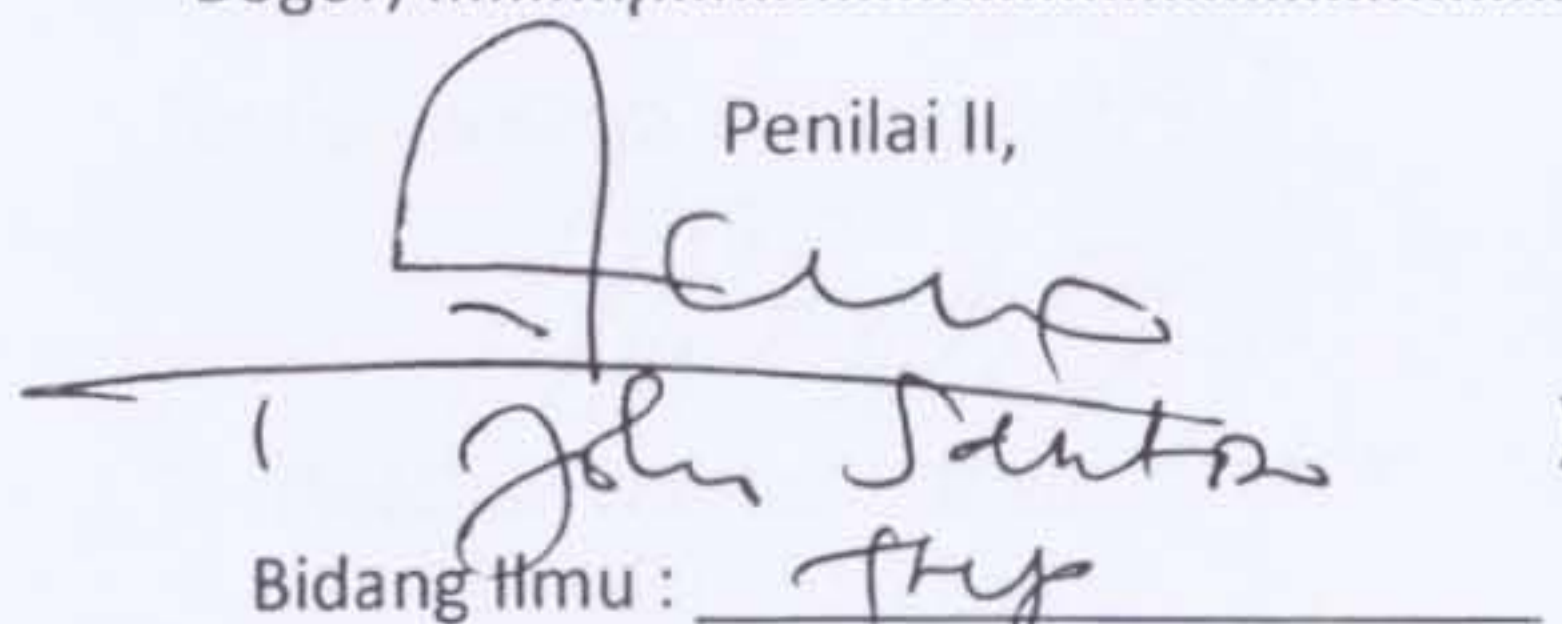 Bogor,
Penilai II,
( John Santoso
Bidang Ilmu : THP